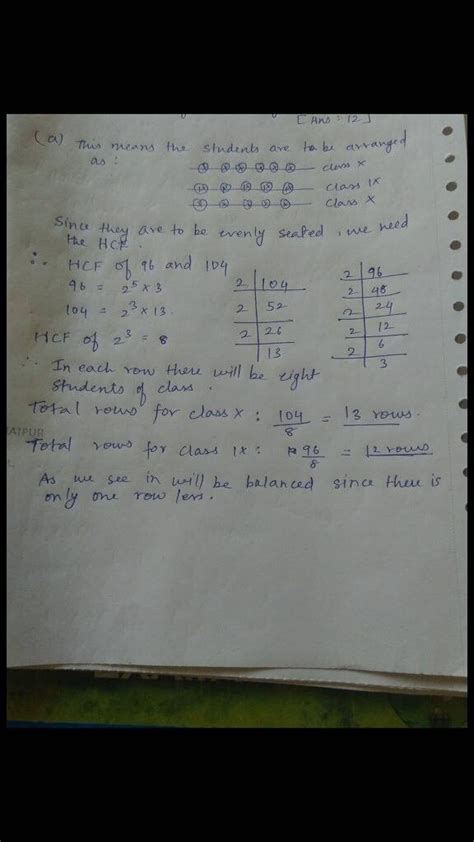 [Ans: 12]
(a) This means the students are to be arranged
as: class X
class IX
class X
Since they are to be evenly seated, we need
the HCF.
∴ HCF of 96 and 104
96 = 2⁵ × 3
104 = 2³ × 13
HCF of 2³ = 8
2 | 104
2 | 52
2 | 26
13
2 | 96
2 | 48
2 | 24
2 | 12
2 | 6
3
∴ In each row there will be eight
students of class.
Total rows for class X : 104/8 = 13 rows.
Total rows for class IX : 96/8 = 12 rows
As we see in will be balanced since there is
only one row less.